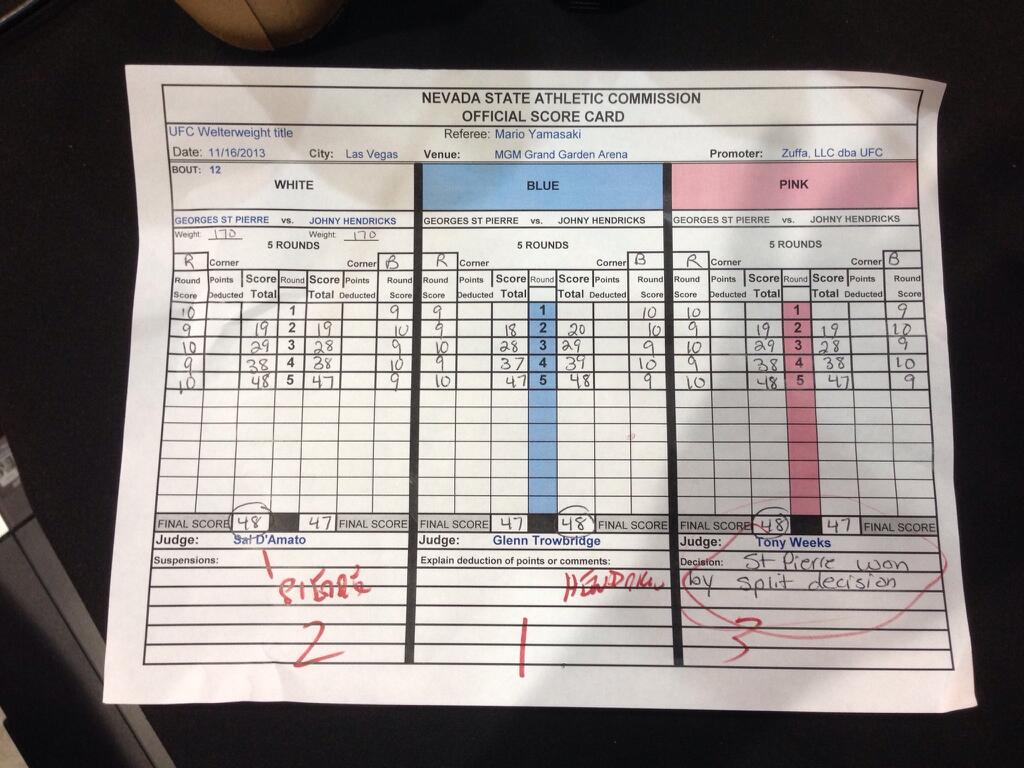 NEVADA STATE ATHLETIC COMMISSION
OFFICIAL SCORE CARD
UFC Welterweight title Referee: Mario Yamasaki
Date: 11/16/2013 City: Las Vegas Venue: MGM Grand Garden Arena Promoter: Zuffa, LLC dba UFC
BOUT: 12
WHITE BLUE PINK
GEORGES ST PIERRE vs. JOHNY HENDRICKS GEORGES ST PIERRE vs. JOHNY HENDRICKS GEORGES ST PIERRE vs. JOHNY HENDRICKS
Weight: 170 Weight: 170
5 ROUNDS 5 ROUNDS 5 ROUNDS
R Corner Corner B R Corner Corner B R Corner Corner B
Round Points Score Round Score Points Round Round Points Score Round Score Points Round Round Points Score Round Score Points Round
Score Deducted Total Total Deducted Score Score Deducted Total Total Deducted Score Score Deducted Total Total Deducted Score
10 1 9 9 1 10 10 1 9
9 19 2 19 10 9 18 2 20 10 9 19 2 19 10
10 29 3 28 9 10 28 3 29 9 10 29 3 28 9
9 38 4 38 10 9 37 4 39 10 9 38 4 38 10
10 48 5 47 9 10 47 5 48 9 10 48 5 47 9
FINAL SCORE 48 47 FINAL SCORE FINAL SCORE 47 48 FINAL SCORE FINAL SCORE 48 47 FINAL SCORE
Judge: Sal D'Amato Judge: Glenn Trowbridge Judge: Tony Weeks
Suspensions: Explain deduction of points or comments: Decision: St Pierre won
by split decision
PIERRE
2 1 3